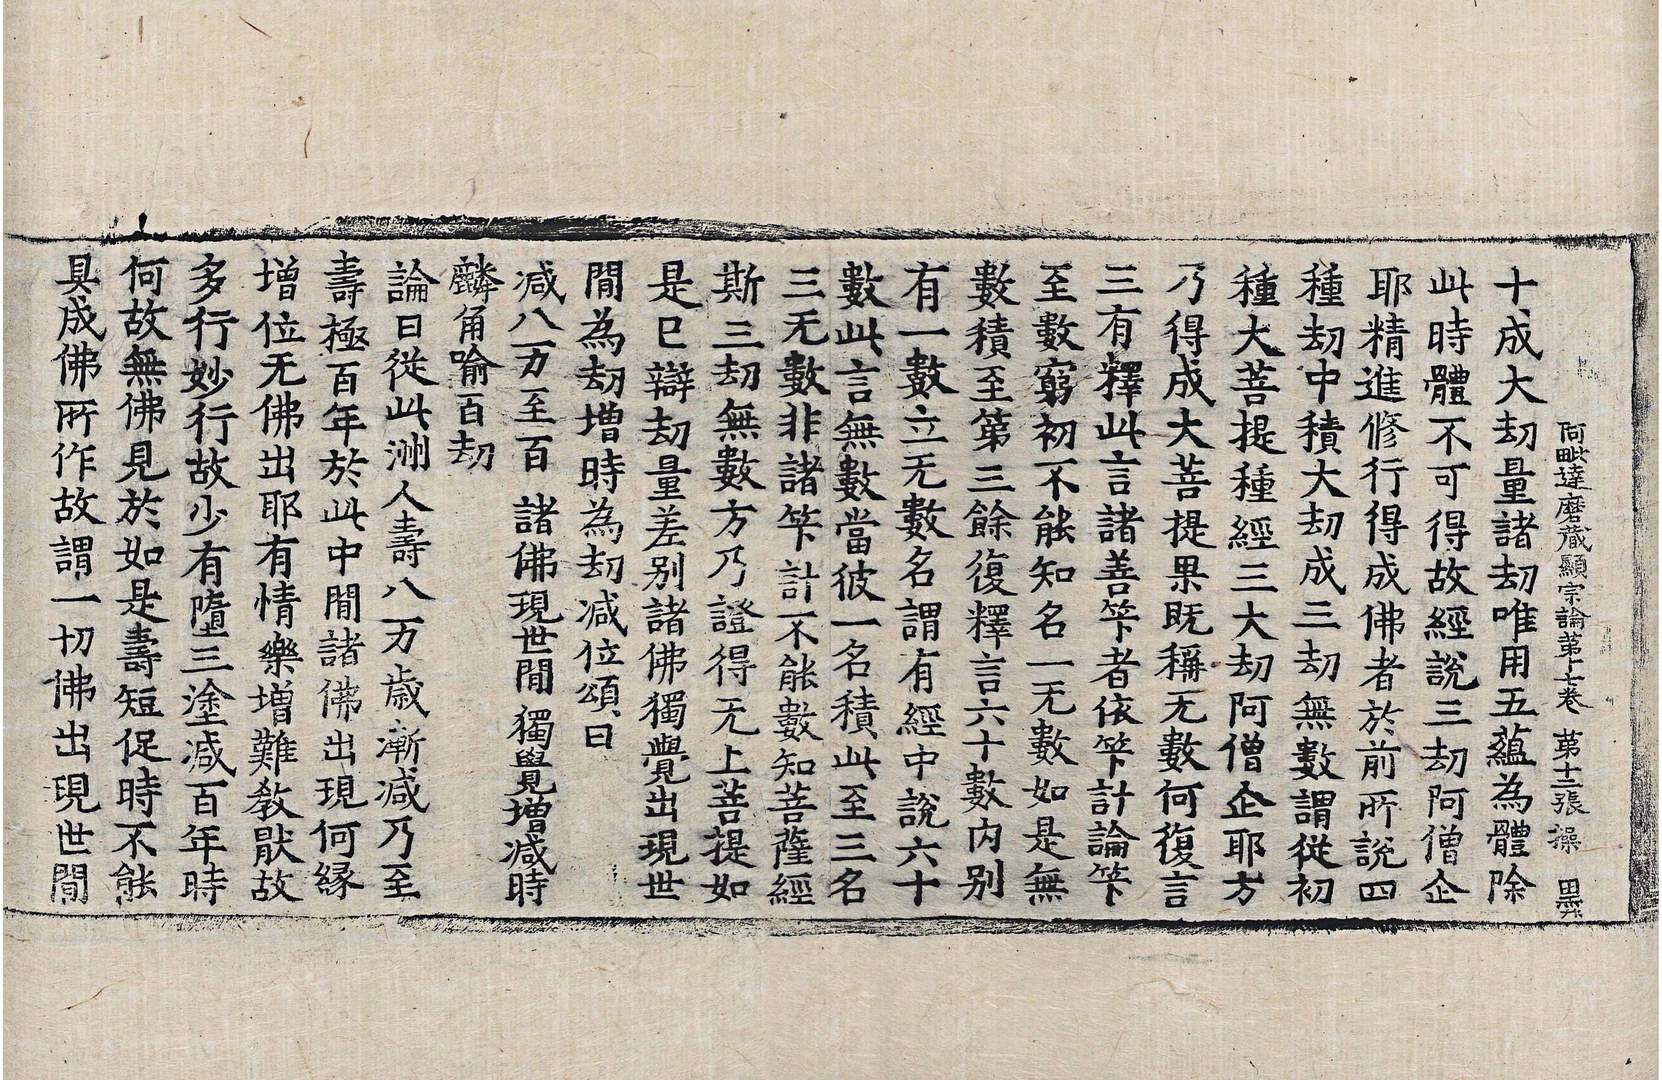 阿毗達磨藏顯宗論第十七卷 第十三張 操
十成大劫量諸劫唯用五蘊為體除
此時體不可得故經說三劫阿僧企
耶精進修行得成佛者於前所說四
種劫中積大劫成三劫無數謂從初
種大菩提種經三大劫阿僧企耶方
乃得成大菩提果既稱无數何復言
三有釋此言諸善筭者依筭計論筭
至數窮初不能知名一无數如是無
數積至第三餘復釋言六十數内别
有一數立无數名謂有經中說六十
數此言無數當彼一名積此至三名
三无數非諸筭計不能數知菩薩經
斯三劫無數方乃證得无上菩提如
是已辯劫量差别諸佛獨覺出現世
間為劫增時為劫减位頌曰
减八万至百 諸佛現世間 獨覺增减時
麟角喻百劫
論曰從此洲人壽八万歲漸减乃至
壽極百年於此中間諸佛出現何緣
增位无佛出耶有情樂增難教猒故
多行妙行故少有墮三塗减百年時
何故無佛見於如是壽短促時不能
具成佛所作故謂一切佛出現世間